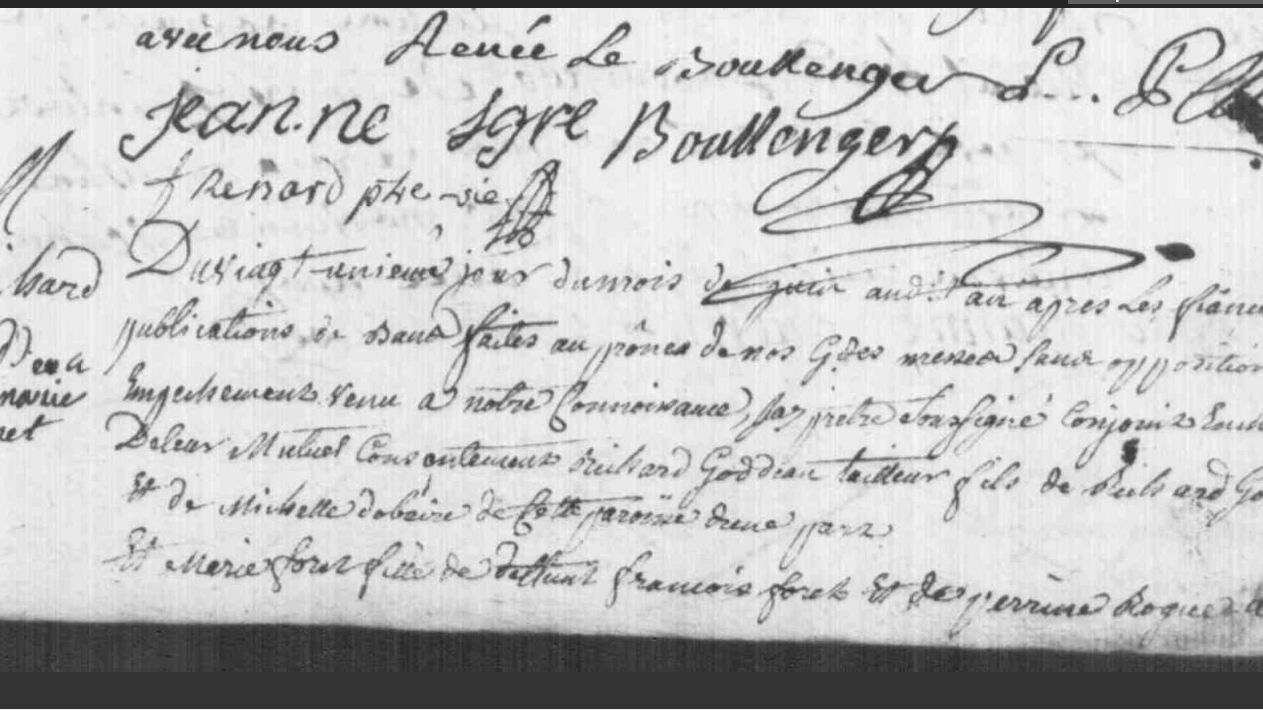 avec nous Renée Le Boullenger L... P
jeanne sgre Boullenger
f Renard ptre vic
hard
Du vingt-unieme jour du mois de juin audit an apres Les fianc
publications de Bans faites au prônes de nos Gdes messes sans opposition
Empechement venu a notre Connoissance, jay pretre soussigné Conjoint
D) en a
marie
ret
De leur Mutuel Consentement Richard Goddeau tailleur fils de Richard Go
Et de Michelle de cette paroisse dune part
Et Marie foret fille de deffunt francois foret Et de perrine Roguer